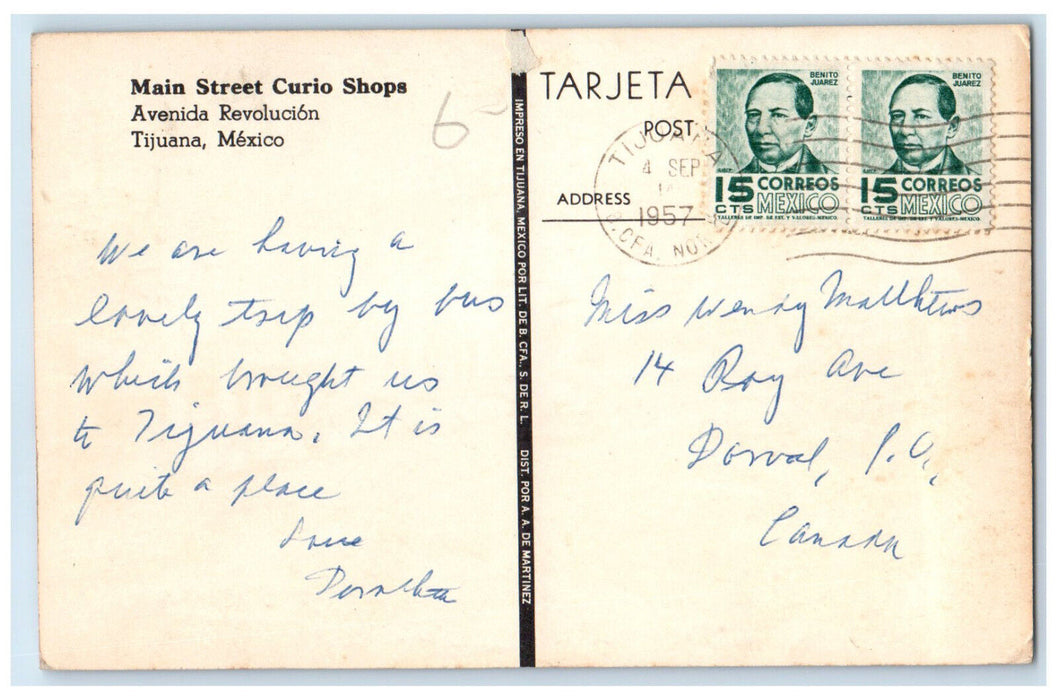 Main Street Curio Shops
Avenida Revolución
Tijuana, México
6-
We are having a
lovely trip by bus
which brought us
to Tijuana. It is
quite a place
Love
IMPRESO EN TIJUANA, MEXICO POR LIT. DE B. CFA., S. DE R. L. DIST. POR A. A. DE MARTINEZ
TARJETA
POST
ADDRESS
TIJUANA
4 SEP
1957
B. CFA. NOR
BENITO
JUAREZ
15 CORREOS
CTS MEXICO
TALLERES DE IMP. DE EST. Y VALORES-MEXICO
BENITO
JUAREZ
15 CORREOS
CTS MEXICO
TALLERES DE IMP. DE EST. Y VALORES-MEXICO
Miss Wendy Matthews
14 Roy Ave
Dorval, P.Q.,
Canada